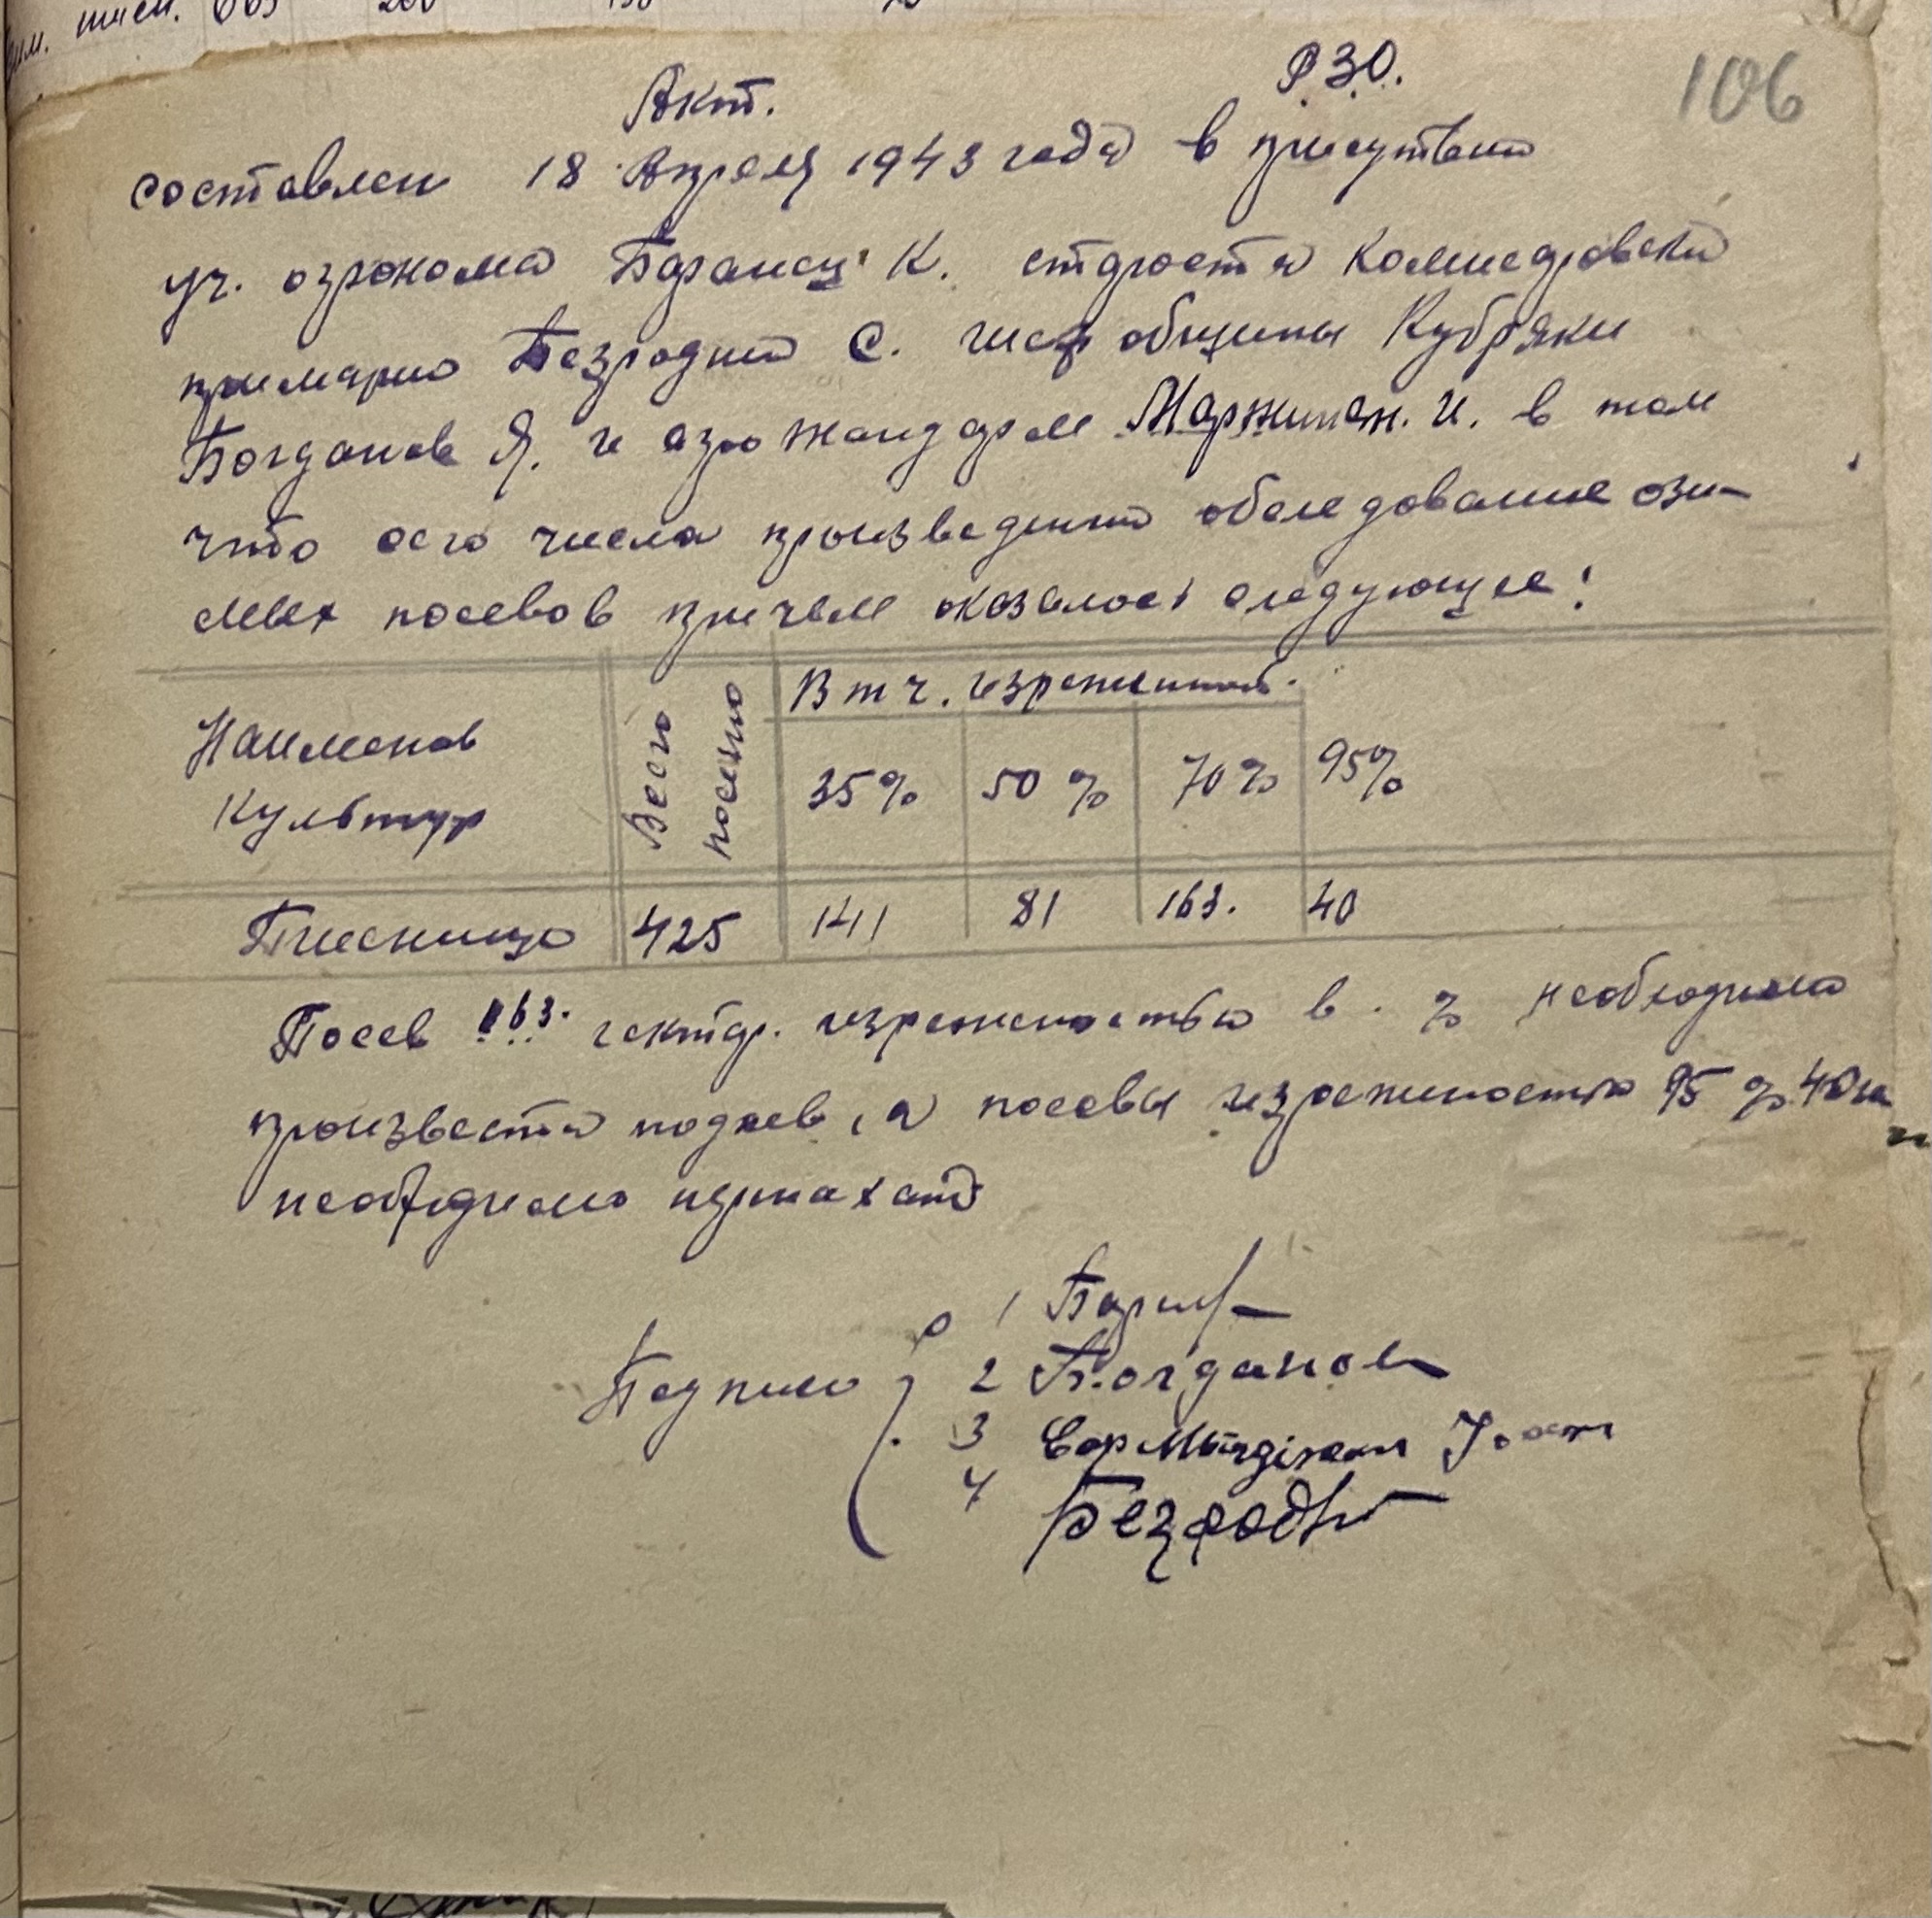 тим. пшен. 663 200 138 73
РЗО.
106
Акт.
составлен 18 Апреля 1943 года в присутствии
уч. огронома Баранец К. старости Комисаровской
примарии Безродний С. общины Кубряки
Богданов Я. и агро жандарм И. в том
что сего числа произведено обследование ози-
мых посевов причем оказалось следующее:
Наименов культур | Всего посеяно | В т ч. изреженност.
35% | 50% | 70% | 95%
Пшеница | 425 | 141 | 81 | 163. | 40
Посев 163. гектар. изреженостью в . % необходимо
произвести подсев, а посевы изреженостью 95 % 40 га
необходимо перпахать
Подписи
1
2 Богданов
3
4 Безродн